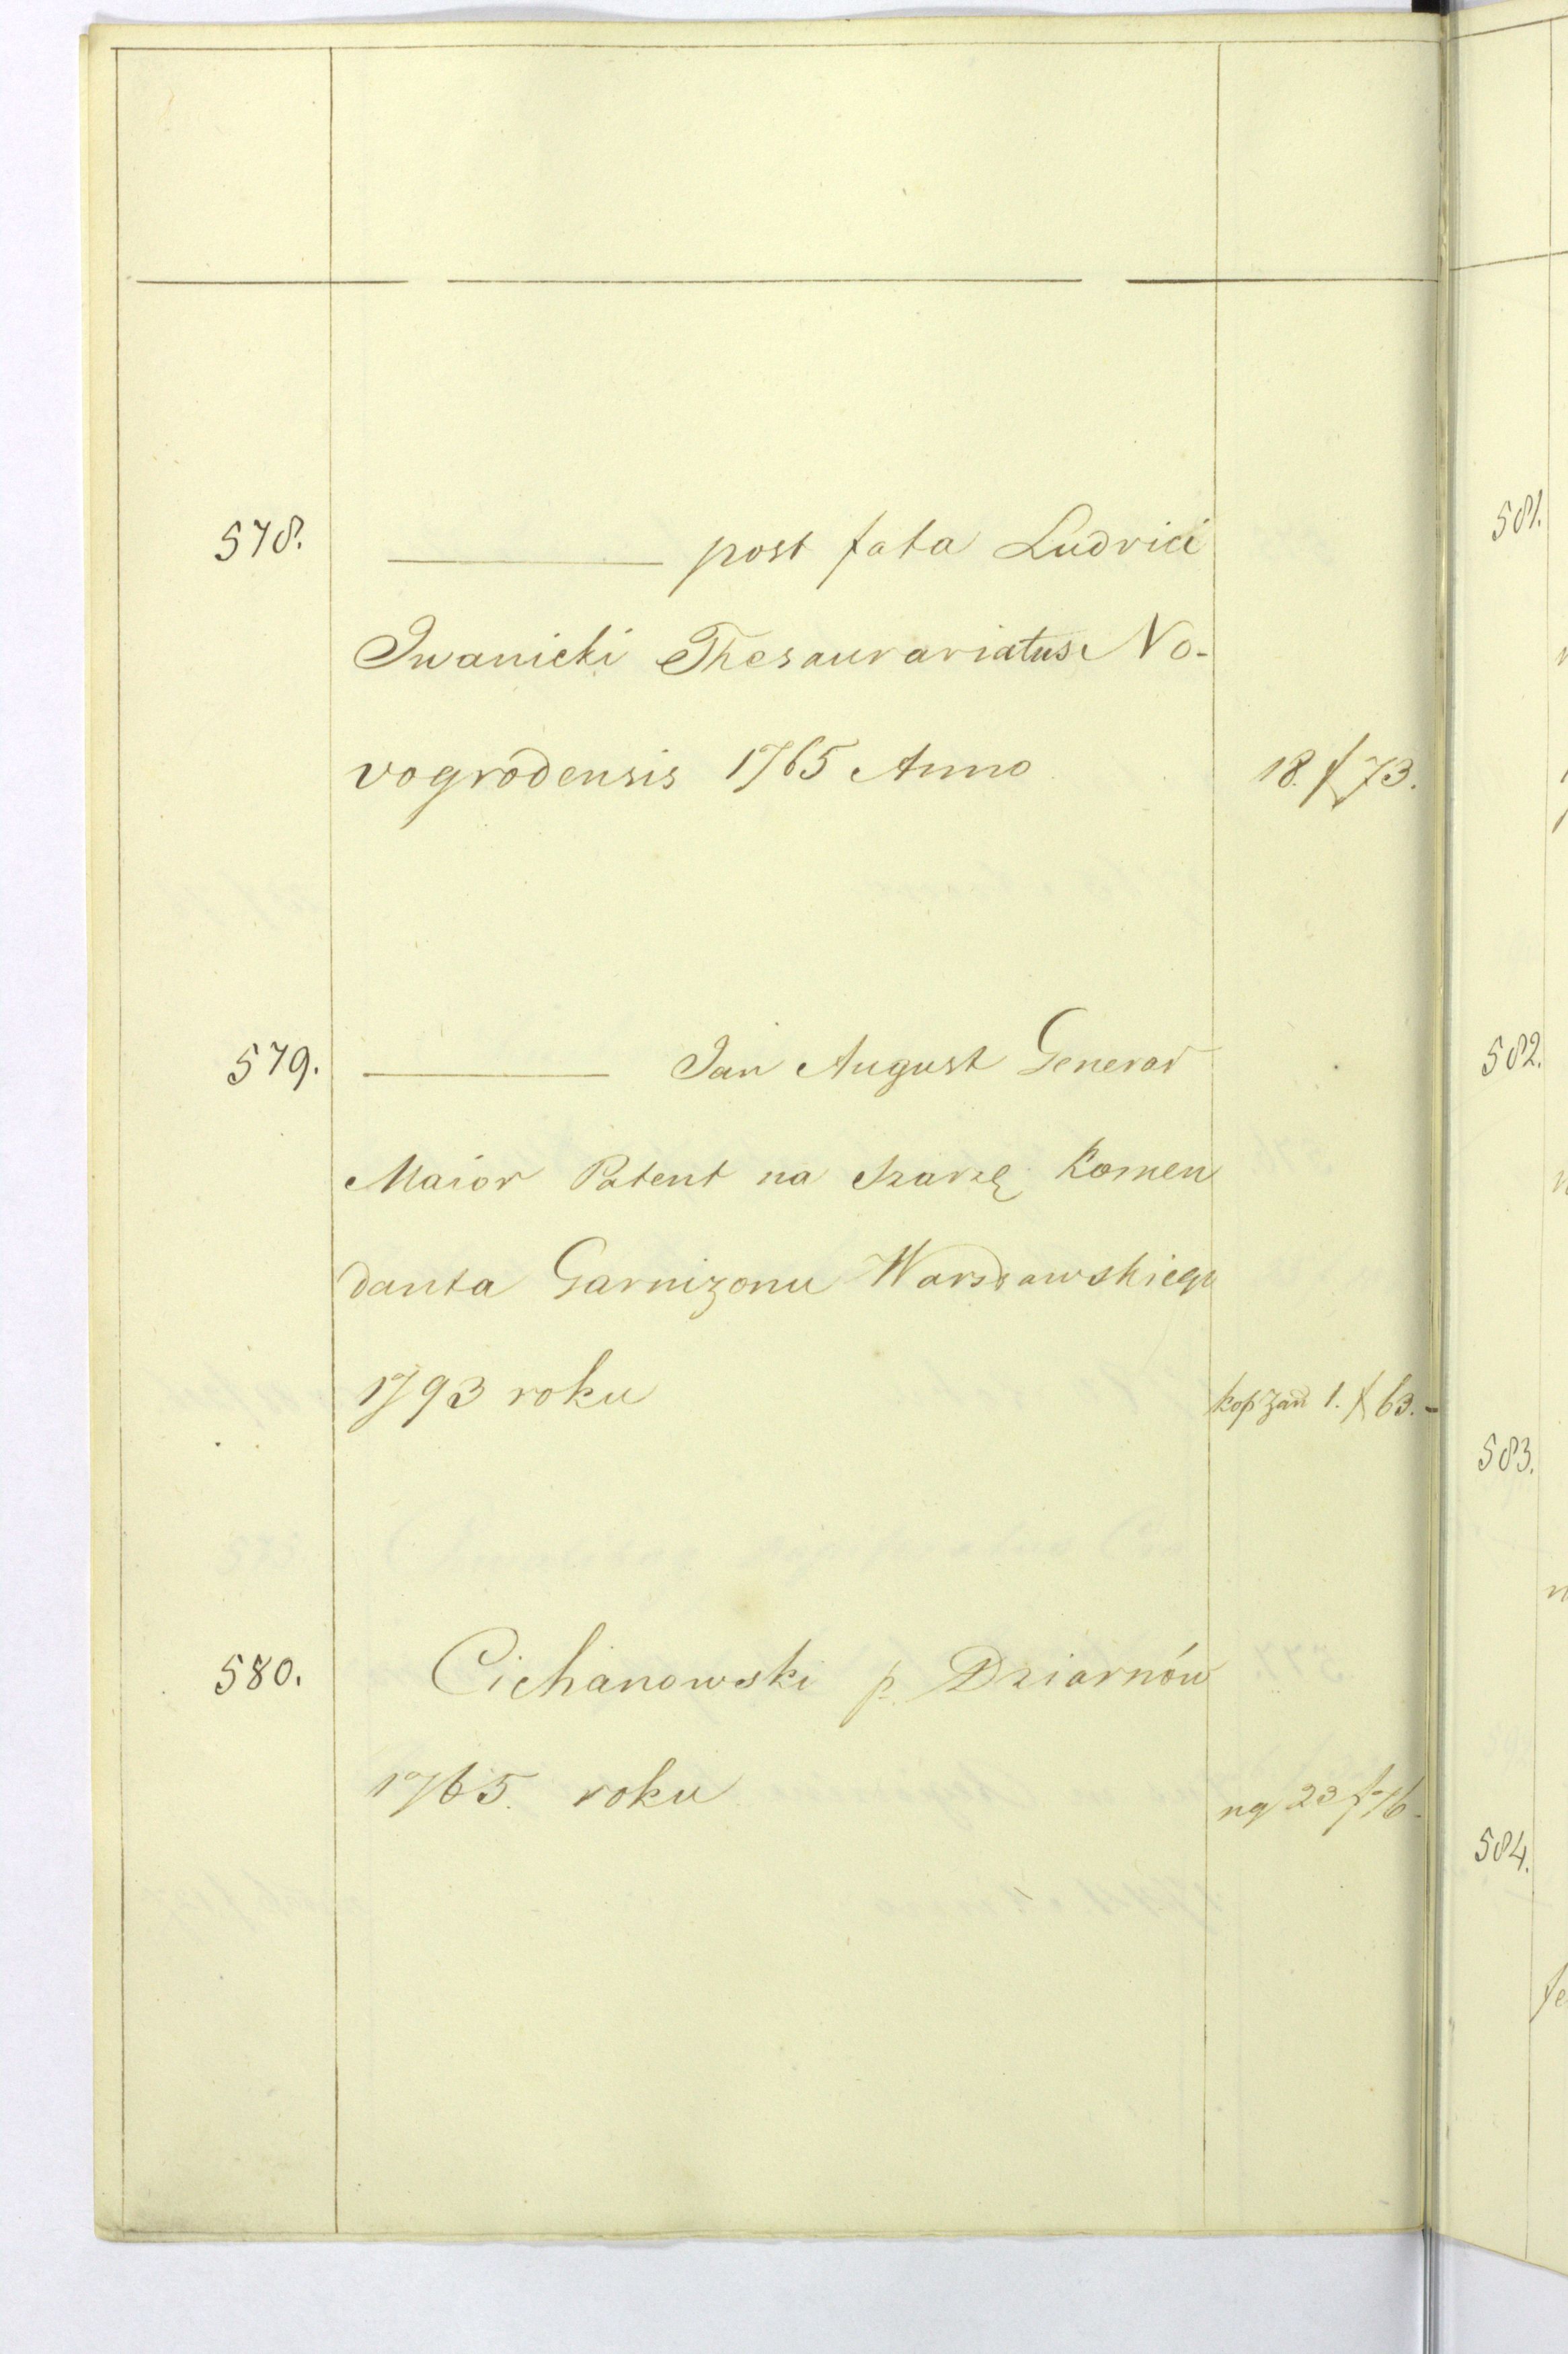 578. ——— post fata Ludvici
Iwanicki Thesaurariatus No-
vogrodensis 1765 Anno 18. f 73.
579. ——— Jan August Generał
Maior Patent na szarżę Komen
danta Garnizonu Warszawskiego
1793 roku kop zań 1. f 63.-
580. Cichanowski p. Dziarnów
1765. roku ng 23 f 76-
581.
582.
583.
584.